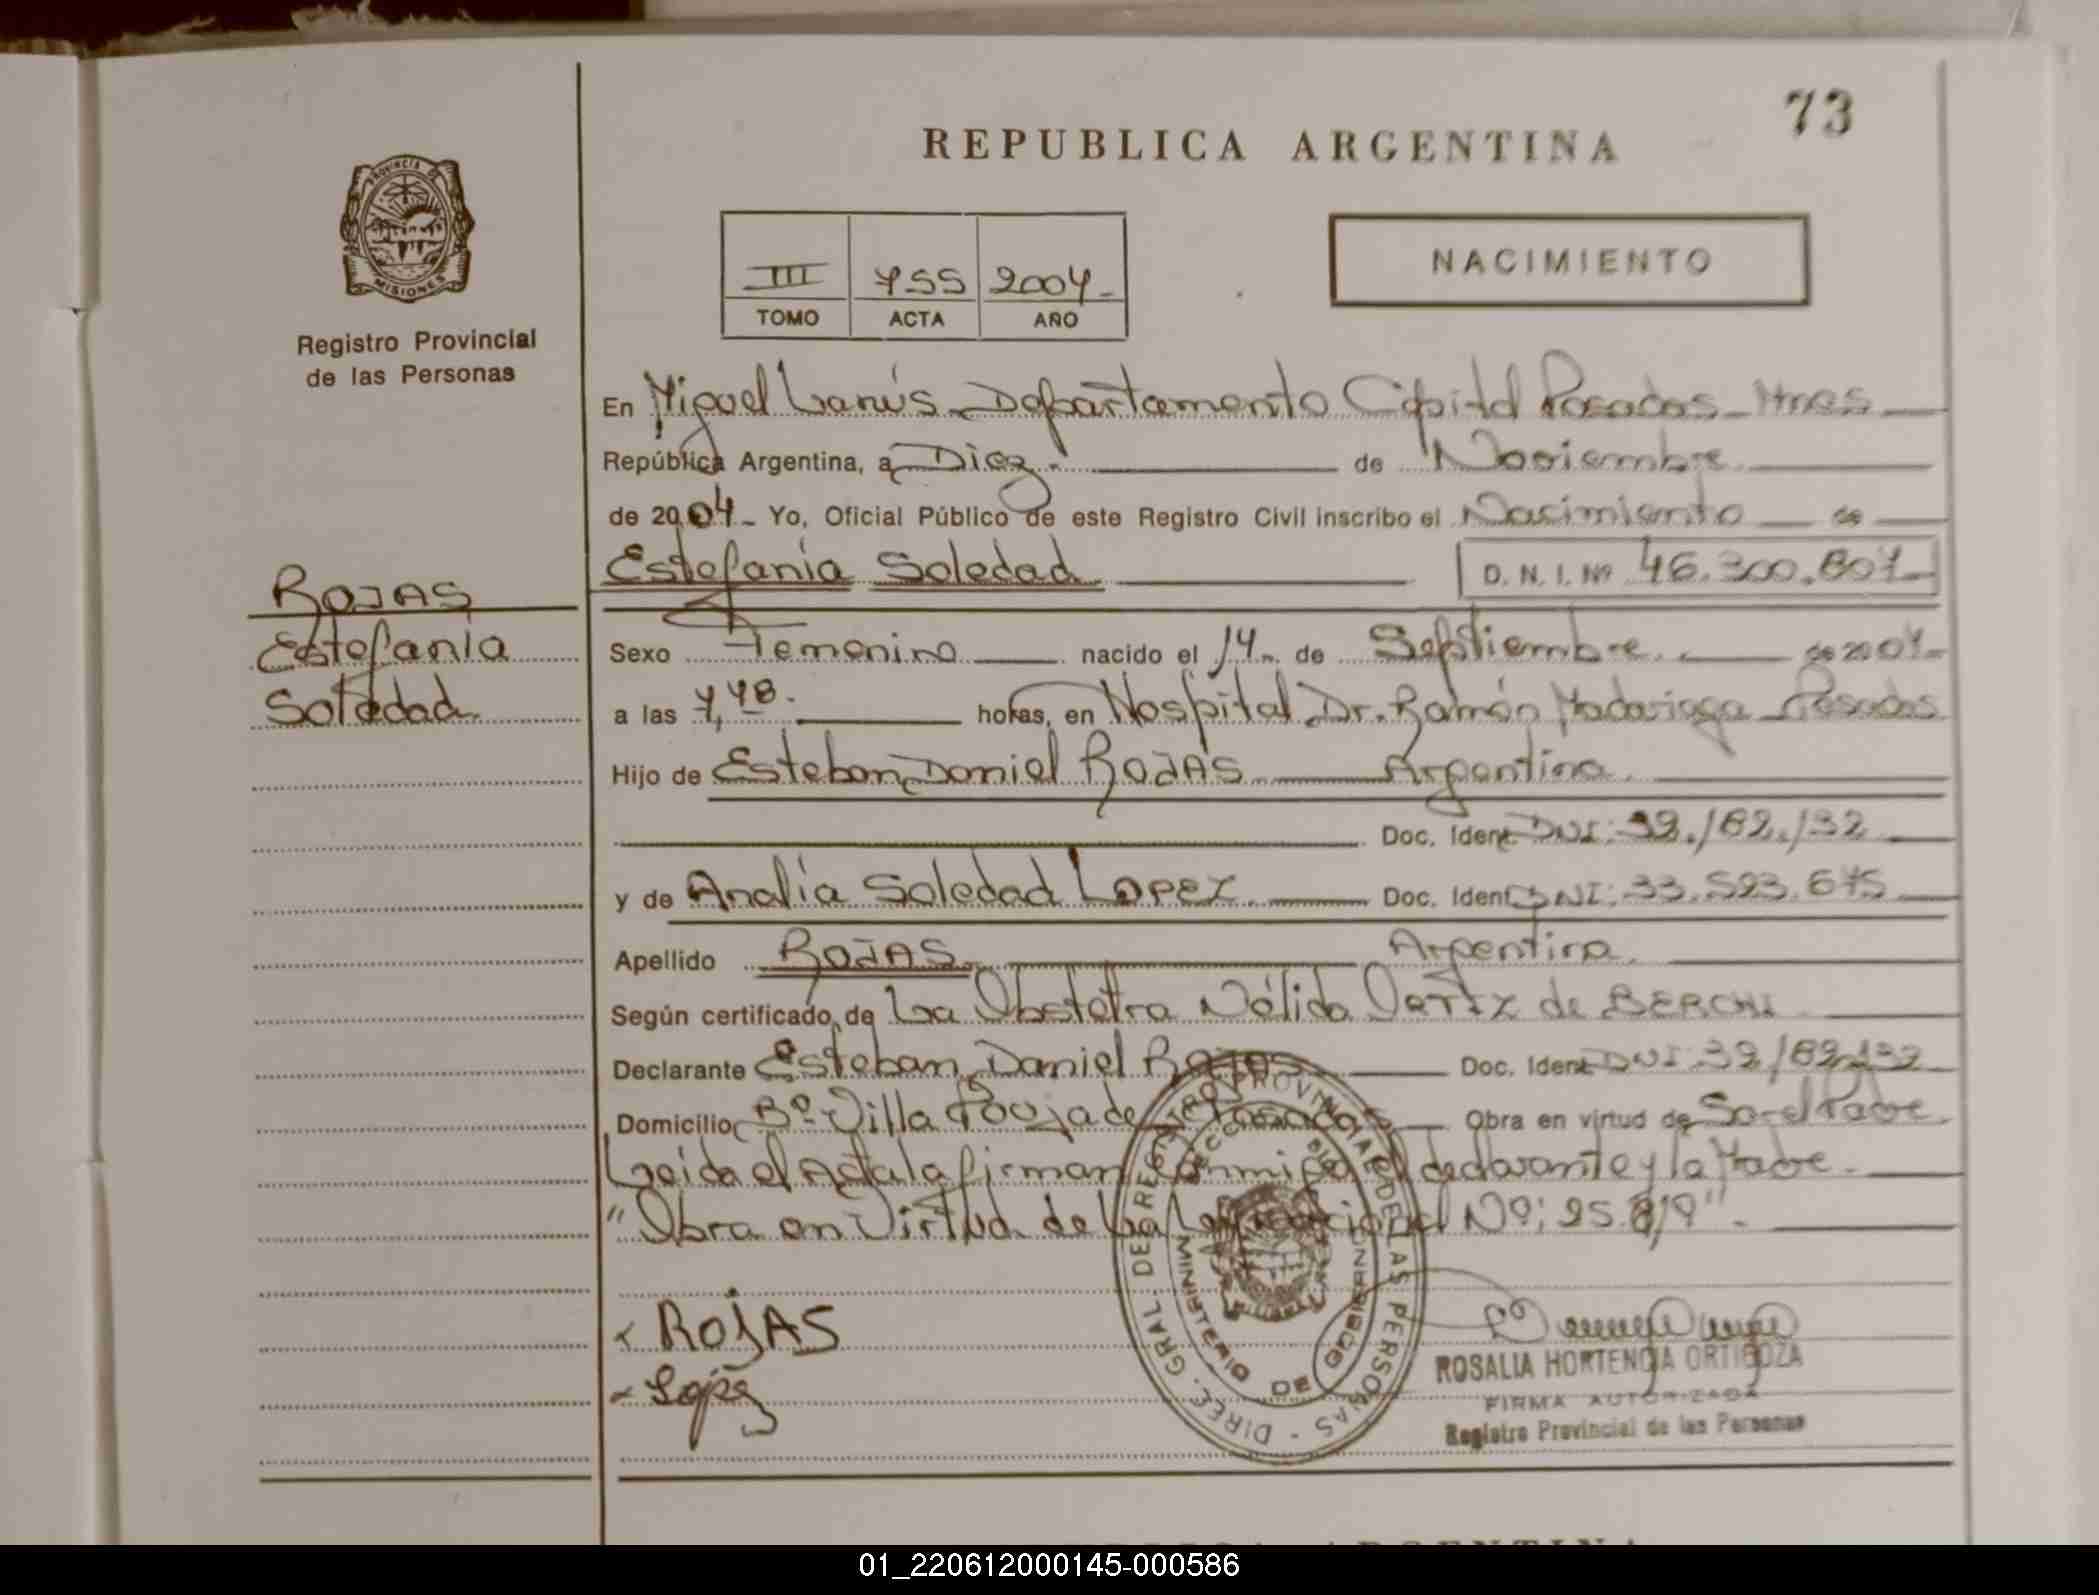 73
REPUBLICA ARGENTINA
PROVINCIA DE
MISIONES
Registro Provincial
de las Personas
NACIMIENTO
III 755 2004-
TOMO ACTA AÑO
En Miguel Lanús - Departamento Capital Posadas - Mnes
República Argentina, a Diez. de Noviembre
de 2004- Yo, Oficial Público de este Registro Civil inscribo el Nacimiento de
Estefanía Soledad D. N. I. Nº 46.300.807-
ROJAS
Estefanía
Soledad
Sexo Femenino nacido el 14- de Septiembre de 2004-
a las 7,48. horas, en Hospital Dr. Ramón Madariaga Posadas
Hijo de Esteban Daniel ROJAS Argentina.
Doc. Ident DNI: 32.182.132
y de Analía Soledad LOPEZ. Doc. Ident DNI: 33.523.675
Apellido ROJAS Argentina.
Según certificado de La Obstetra Nélida
Declarante Esteban Daniel Rojas Doc. Ident DNI 32.182.132
Domicilio Bº Villa Poujade Posadas Obra en virtud de Ser el Padre
Leida el Acta la firman conmigo el declarante y la Madre.
"Obra en Virtud de la Ley Nacional Nº: 25.819".
DIREC. GRAL. DE REGISTRO PROVINCIAL DE LAS PERSONAS
MINISTERIO DE GOBIERNO
x ROJAS
x López
ROSALIA HORTENCIA ORTIGOZA
FIRMA AUTORIZADA
Registro Provincial de las Personas
REPUBLICA ARGENTINA
01_220612000145-000586